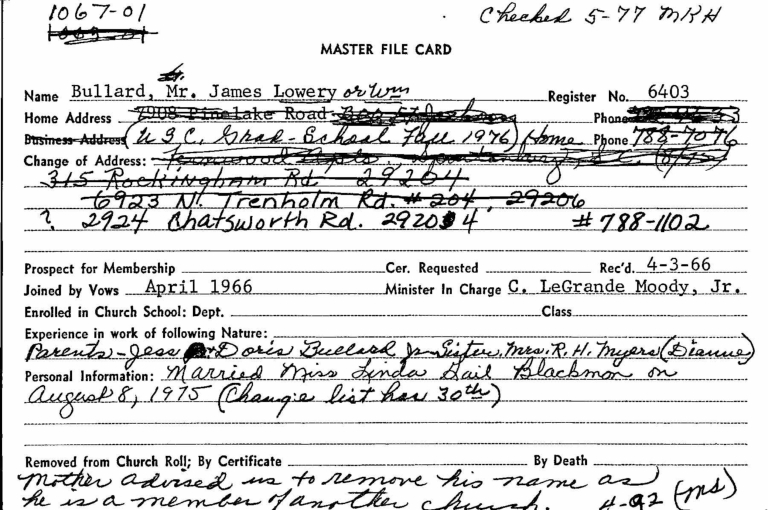 1067-01
Checked 5-77 MRH
MASTER FILE CARD
Name Bullard, Mr. James Lowery or Wm Register No. 6403
Home Address 7908 Pinelake Road Phone
Business Address (U.S.C. Grad-School Fall 1976) Home Phone 788-7076
Change of Address:
315 Rockingham Rd 29204
6923 N. Trenholm Rd. # 204, 29206
? 2924 Chatsworth Rd. 29204 # 788-1102
Prospect for Membership Cer. Requested Rec'd. 4-3-66
Joined by Vows April 1966 Minister In Charge C. LeGrande Moody, Jr.
Enrolled in Church School: Dept. Class
Experience in work of following Nature:
Parents-Jess Doris Bullard Jr Sister, Mrs. R. H. Myers (Dianne)
Personal Information: Married Miss Linda Gail Blackmon on
August 8, 1975 (Change list has 30th)
Removed from Church Roll; By Certificate By Death
Mother advised us to remove his name as
he is a member of another church. 4-92 (ms)